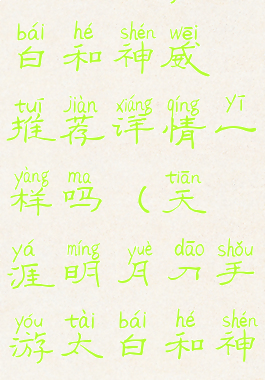 bái hé shén wēi
白和神威
tuī jiàn xiáng qíng yī
推荐详情一
yàng ma tiān
样吗（天
yá míng yuè dāo shǒu
涯明月刀手
yóu tài bái hé shén
游太白和神